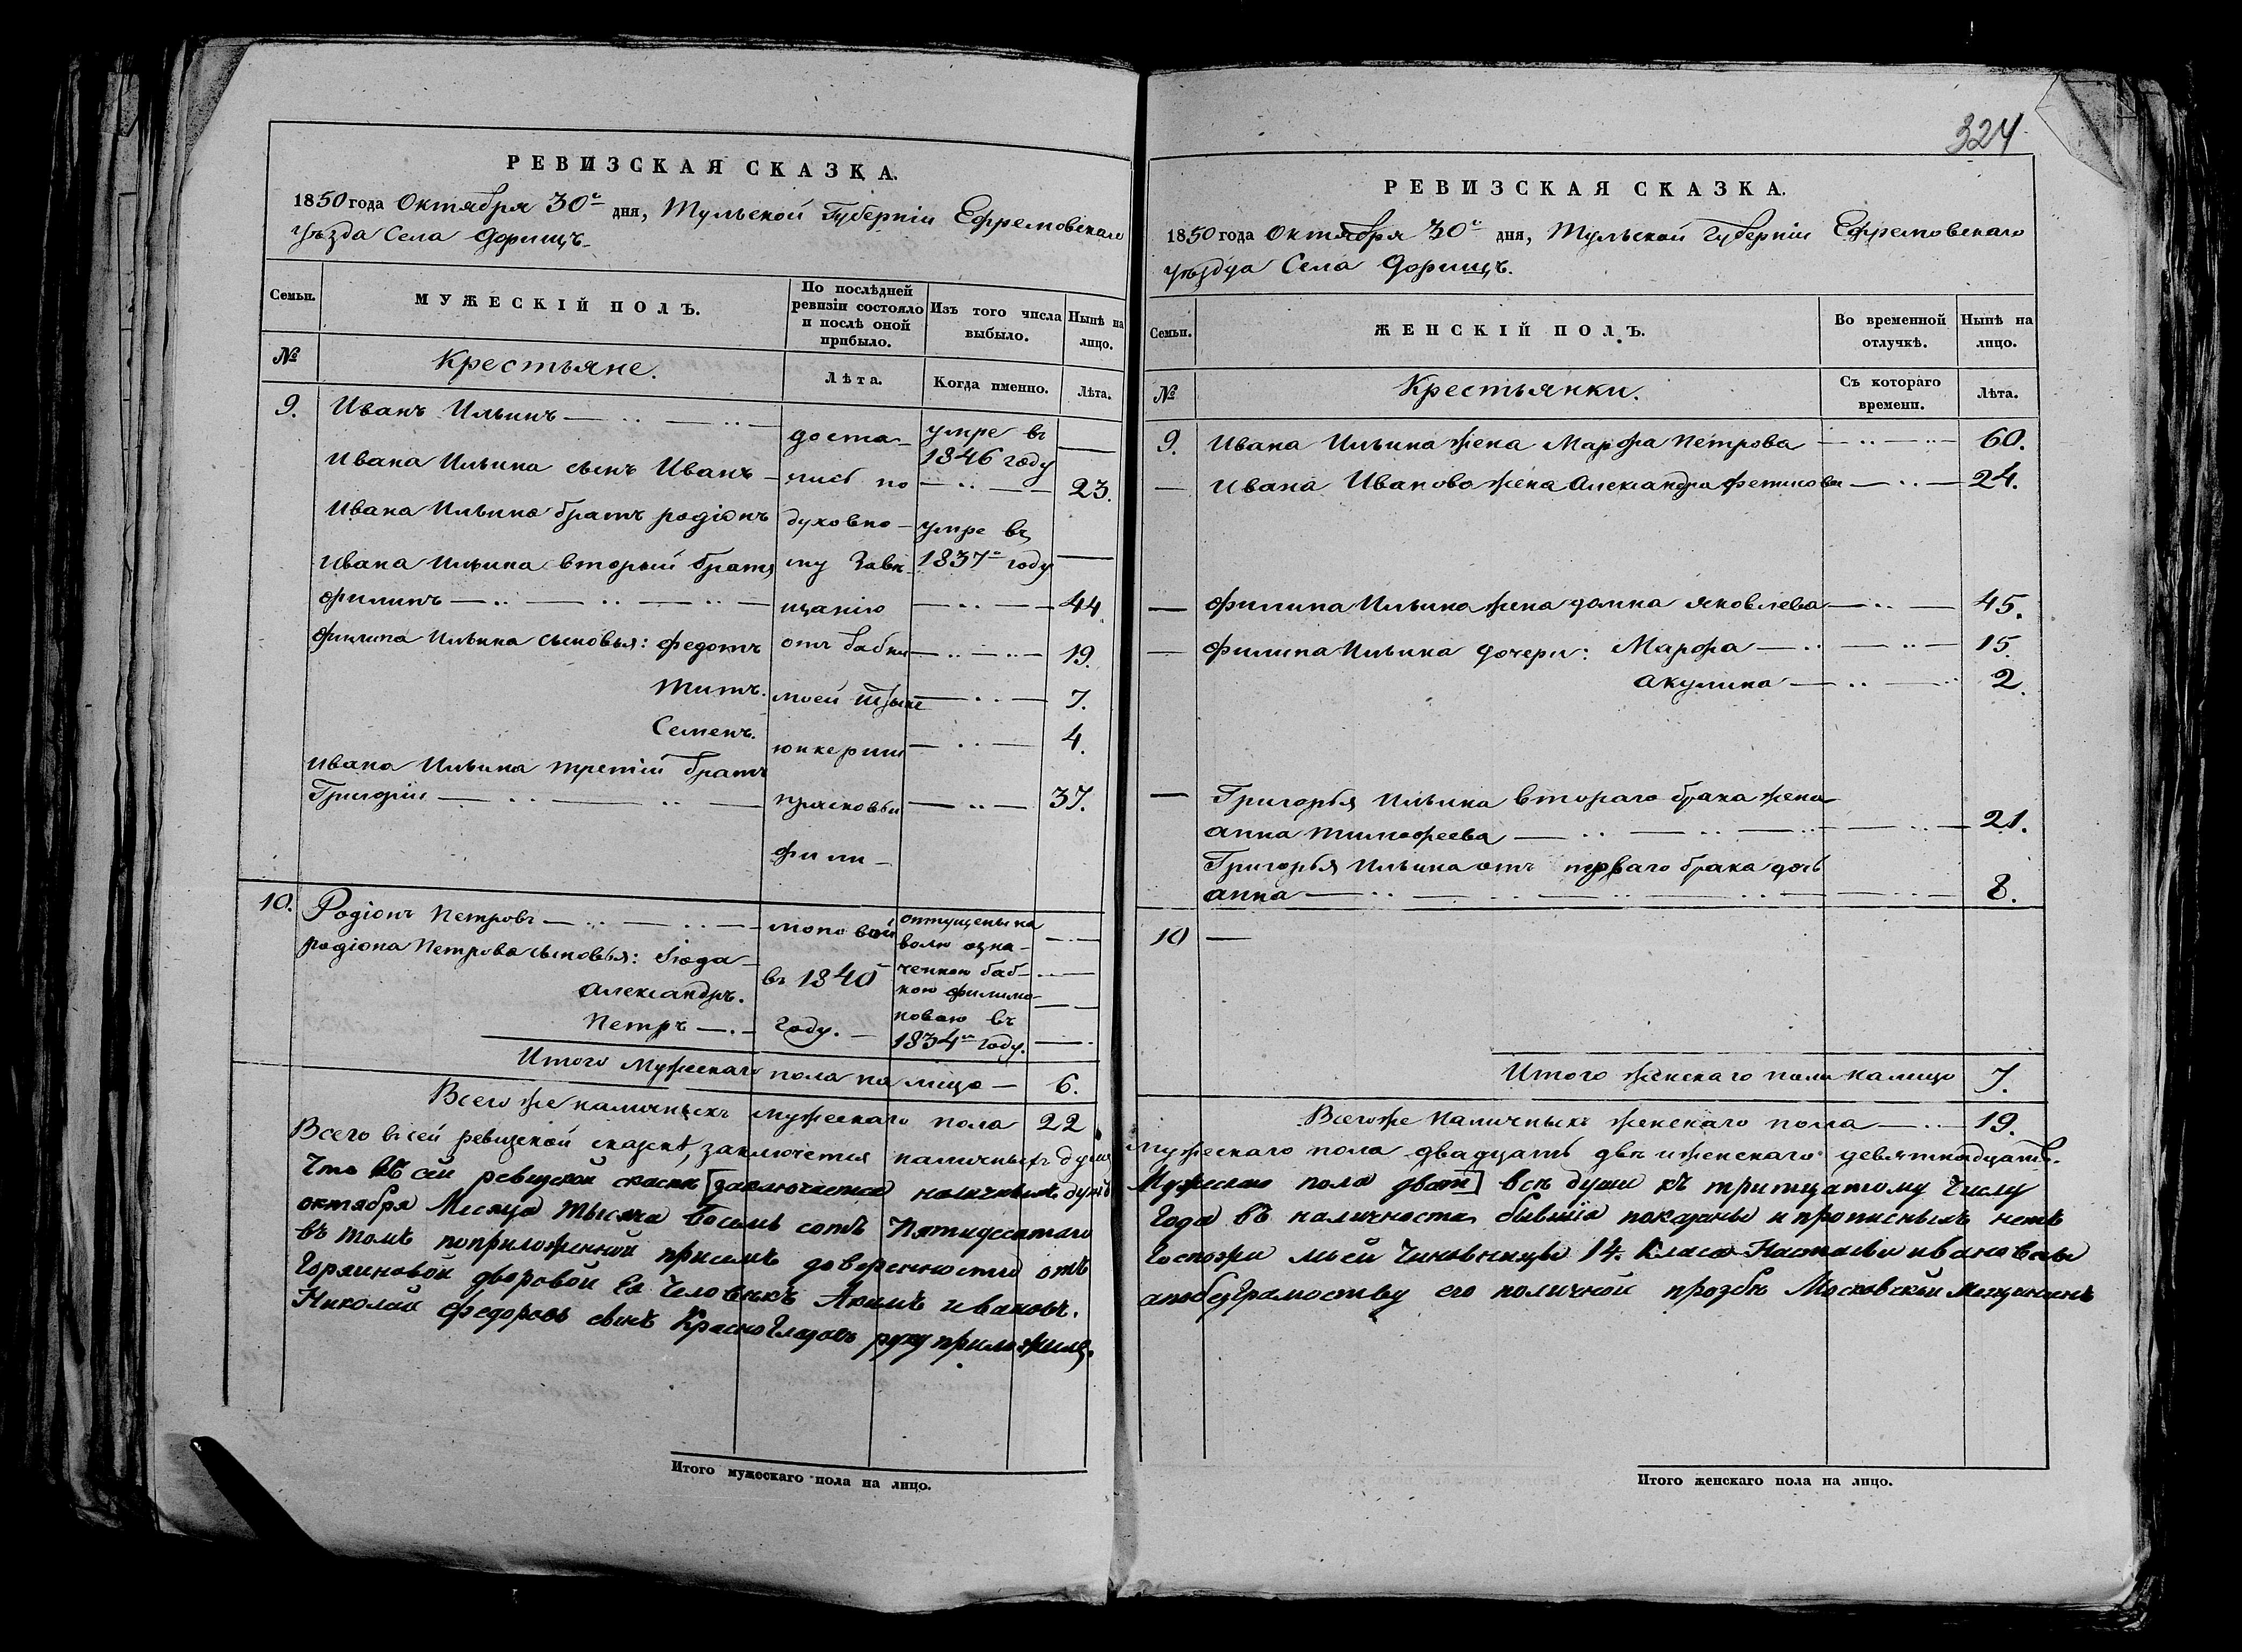 РЕВИЗСКАЯ СКАЗКА.
1850 года Октября 30го дня, Тульской Губерніи Ефремовскаго
уѣзда Села
Семьи.
МУЖЕСКІЙ ПОЛЪ.
По послѣдней
ревизіи состояло
и послѣ оной
прибыло.
Изъ того числа
выбыло.
Нынѣ на
лицо.
№
Крестьяне.
Лѣта.
Когда именно.
Лѣта.
9. Иванъ Ильинъ
Ивана Ильина сынъ Иванъ 23.
Ивана Ильина братъ родіонъ
Ивана Ильина вторый братъ
филипъ 44.
филипа Ильина сыновья: федотъ 19.
титъ. 7.
Семенъ. 4.
Ивана Ильина третій братъ
Григорій 37.
доста-
лись по
духовно-
му Завѣ-
щанію
отъ бабки
моей
юнкерши
прасковьи
фили-
моновой
въ 1840
году.
умре въ
1846 году
умре въ
1837 году
10. Родіонъ Петровъ
родіона Петрова сыновья:
Александръ.
Петръ
отпущены на
волю озна-
ченною баб-
кою филимо-
новою въ
1834м году.
Итого Мужескаго пола на лицо 6.
Всего же наличныхъ мужескаго пола 22.
324
РЕВИЗСКАЯ СКАЗКА.
1850 года Октября 30го дня, Тульской Губерніи Ефремовскаго
уѣзда Села
Семьи.
ЖЕНСКІЙ ПОЛЪ.
Во временной
отлучкѣ.
Нынѣ на
лицо.
№
Крестьянки.
Съ котораго
времени.
Лѣта.
9. Ивана Ильина жена Марфа Петрова 60.
Ивана Иванова жена Александра 24.
филипа Ильина жена домна яковлева 45.
филипа Ильина дочери: Марфа 15.
акулина 2.
Григорья Ильина втораго брака жена
анна тимофеева 21.
Григорья Ильина отъ перваго брака дочь
анна 8.
10
Итого женскаго пола налицо 7.
Всего же наличныхъ женскаго пола 19.
Всего въ сей ревизской сказкѣ, заключется наличныхъ душъ мужескаго пола двадцать двѣ и женскаго девятнадцать.
Что въ сей ревизской сказки [заключается наличныхъ душъ Мужескаго пола двати] всѣ души къ тритцатому Числу
октября Месяца тысяча восемь сотъ Пятидесятаго Года въ наличности бывшія показаны и прописныхъ нетъ
въ томъ поприложенной присемъ доверенности отъ Госпожи моей Чиновницы 14. Класа Настасьи ивановны
Горяиновой дворовой Ея Человѣкъ Акимъ ивановъ. апобезграмоству его поличной прозбѣ Московской Мещининъ
Николай федоровъ сынъ Красноглазовъ руку приложилъ.
Итого мужескаго пола на лицо.
Итого женскаго пола на лицо.